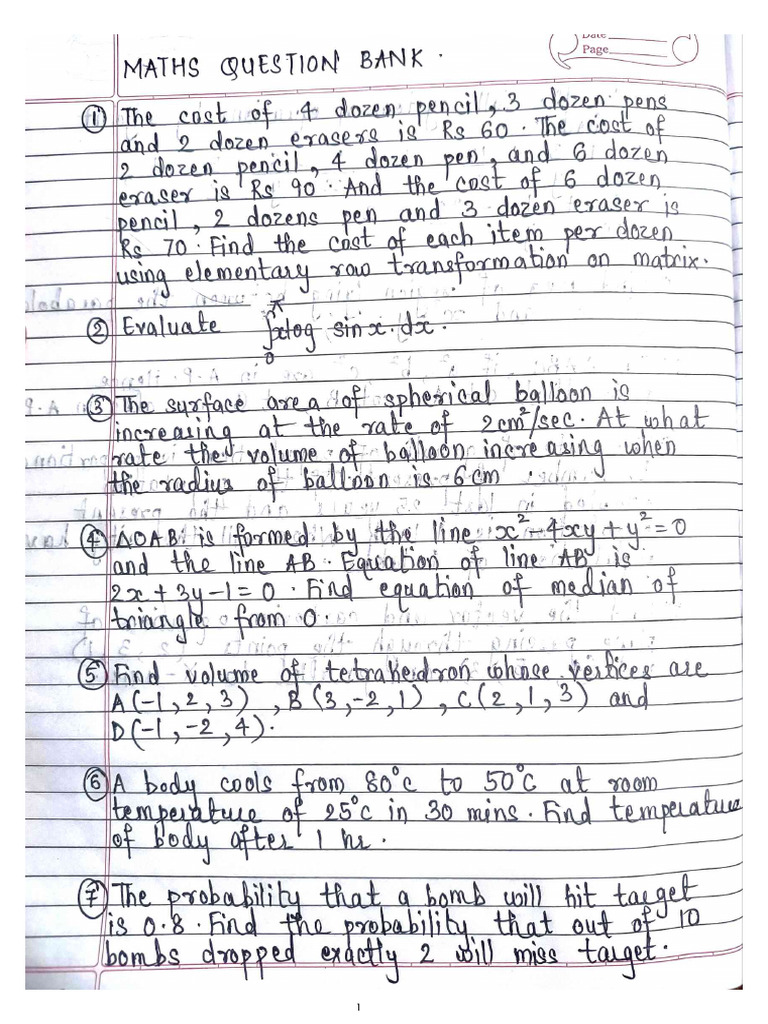 Date
Page
MATHS QUESTION BANK.
① The cost of 4 dozen pencil, 3 dozen pens
and 2 dozen erasers is Rs 60. The cost of
2 dozen pencil, 4 dozen pen, and 6 dozen
eraser is Rs 90. And the cost of 6 dozen
pencil, 2 dozens pen and 3 dozen eraser is
Rs 70. Find the cost of each item per dozen
using elementary row transformation on matrix.
② Evaluate ∫₀^π x log sin x. dx.
③ The surface area of spherical balloon is
increasing at the rate of 2cm²/sec. At what
rate the volume of balloon increasing when
the radius of balloon is 6cm.
④ ΔOAB is formed by the line x²-4xy+y²=0
and the line AB. Equation of line AB is
2x+3y-1=0. Find equation of median of
triangle from O.
⑤ Find volume of tetrahedron whose vertices are
A(-1,2,3), B(3,-2,1), C(2,1,3) and
D(-1,-2,4).
⑥ A body cools from 80°c to 50°c at room
temperature of 25°c in 30 mins. Find temperature
of body after 1 hr.
⑦ The probability that a bomb will hit target
is 0.8. Find the probability that out of 10
bombs dropped exactly 2 will miss target.
1